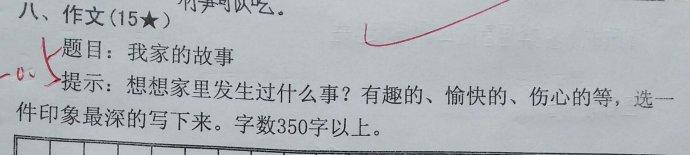 有笋可以吃。
八、作文(15★)
题目：我家的故事
提示：想想家里发生过什么事？有趣的、愉快的、伤心的等，选一
件印象最深的写下来。字数350字以上。